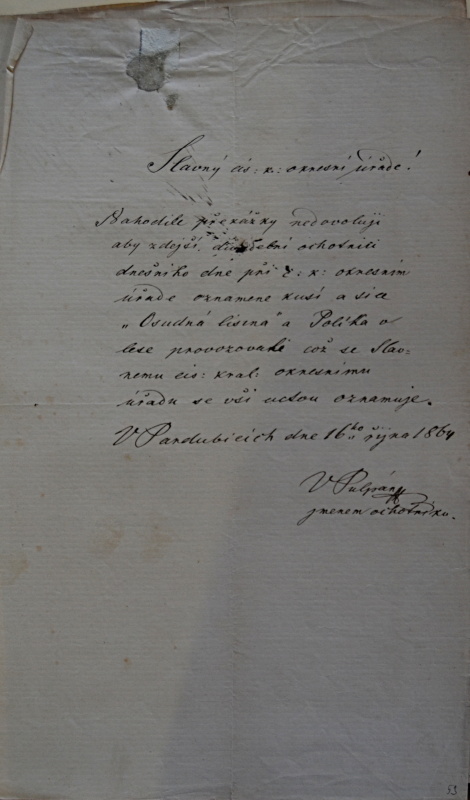 Slavný cis: k: okresní úřade!
Nahodilé překážky nedovolují
aby zdejší divadební ochotníci
dnešního dne při c: k: okresním
úřade oznamene kusí a sice
„Osudná lisena" a Polika v
lese provozovali což se Slav-
nemu cis: kral: okresnímu
úřadu se vší uctou oznamuje.
V Pardubicích dne 16ho října 1864
V
jmenem ochotníku.
53